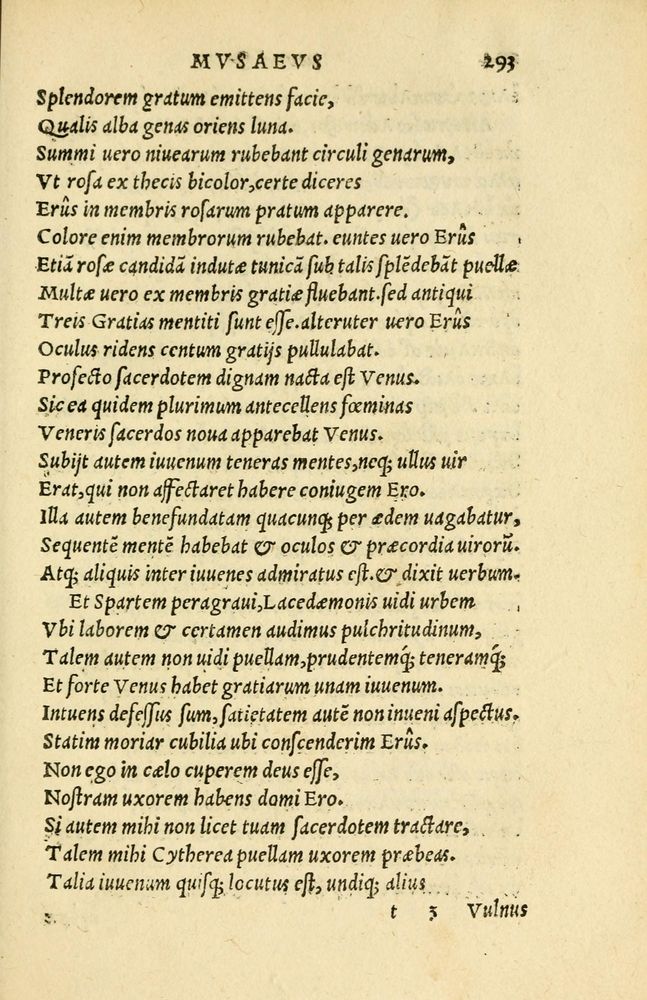 MVSAEVS 293
Splendorem gratum emittens facie,
Qualis alba genas oriens luna.
Summi uero niuearum rubebant circuli genarum,
Vt rosa ex thecis bicolor, certe diceres
Erûs in membris rosarum pratum apparere.
Colore enim membrorum rubebat. euntes uero Erûs
Etiã rosæ candidã indutæ tunicã sub talis splẽdebãt puellæ
Multæ uero ex membris gratiæ fluebant. sed antiqui
Treis Gratias mentiti sunt esse. alteruter uero Erûs
Oculus ridens centum gratijs pullulabat.
Profecto sacerdotem dignam nacta est Venus.
Sic ea quidem plurimum antecellens fœminas
Veneris sacerdos noua apparebat Venus.
Subijt autem iuuenum teneras mentes, neq; ullus uir
Erat, qui non affectaret habere coniugem Ero.
Illa autem benefundatam quacunq; per ædem uagabatur,
Sequentẽ mentẽ habebat & oculos & præcordia uirorũ.
Atq; aliquis inter iuuenes admiratus est. & dixit uerbum.
Et Spartem peragraui, Lacedæmonis uidi urbem
Vbi laborem & certamen audimus pulchritudinum,
Talem autem non uidi puellam, prudentemq́; teneramq́;
Et forte Venus habet gratiarum unam iuuenum.
Intuens defessus sum, satietatem autẽ non inueni aspectus.
Statim moriar cubilia ubi conscenderim Erûs.
Non ego in cælo cuperem deus esse,
Nostram uxorem habens domi Ero.
Si autem mihi non licet tuam sacerdotem tractare,
Talem mihi Cytherea puellam uxorem præbeas.
Talia iuuenum quisq; locutus est, undiq; alius
t 3 Vulnus